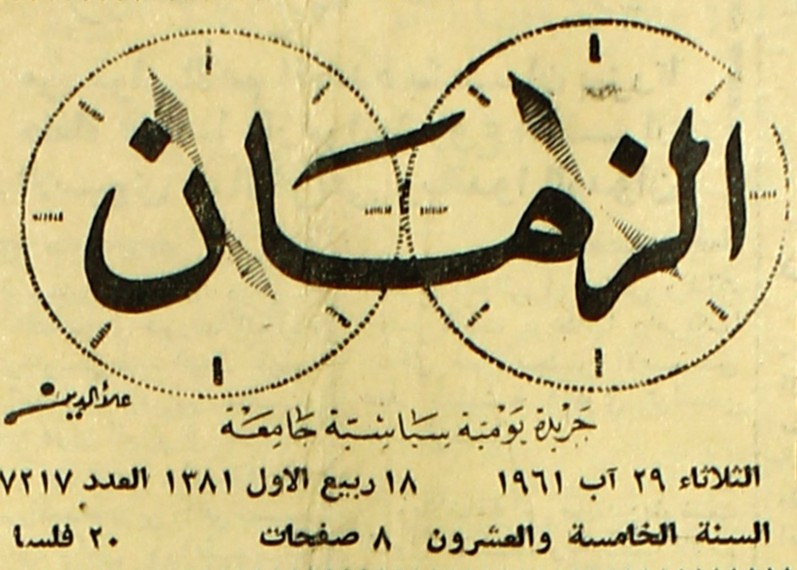 الزمان
علاءالدين
جريدة يومية سياسية جامعة
الثلاثاء ٢٩ آب ١٩٦١ ١٨ ربيع الاول ١٣٨١ العدد ٧٢١٧
السنة الخامسة والعشرون ٨ صفحات ٢٠ فلسا